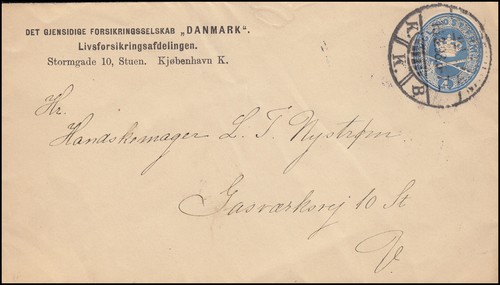 DET GJENSIDIGE FORSIKRINGSSELSKAB „DANMARK“.
Livsforsikringsafdelingen.
Stormgade 10, Stuen. Kjøbenhavn K.
Hr.
Handskemager L. T. Nystrøm
Gasværksvej 10 St
V.
K K B